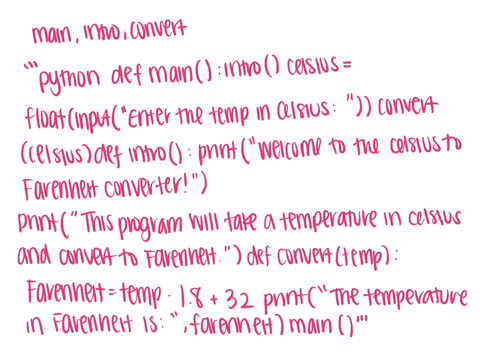 main, intro, convert
```python def main(): intro() celsius =
float(input("Enter the temp in Celsius: ")) convert
(celsius) def intro(): print("Welcome to the celsius to
Farenheit converter!")
print("This program will take a temperature in celsius
and convert to Farenheit.") def convert(temp):
Farenheit = temp · 1.8 + 32 print("The temperature
in Farenheit is: ", farenheit) main ()```